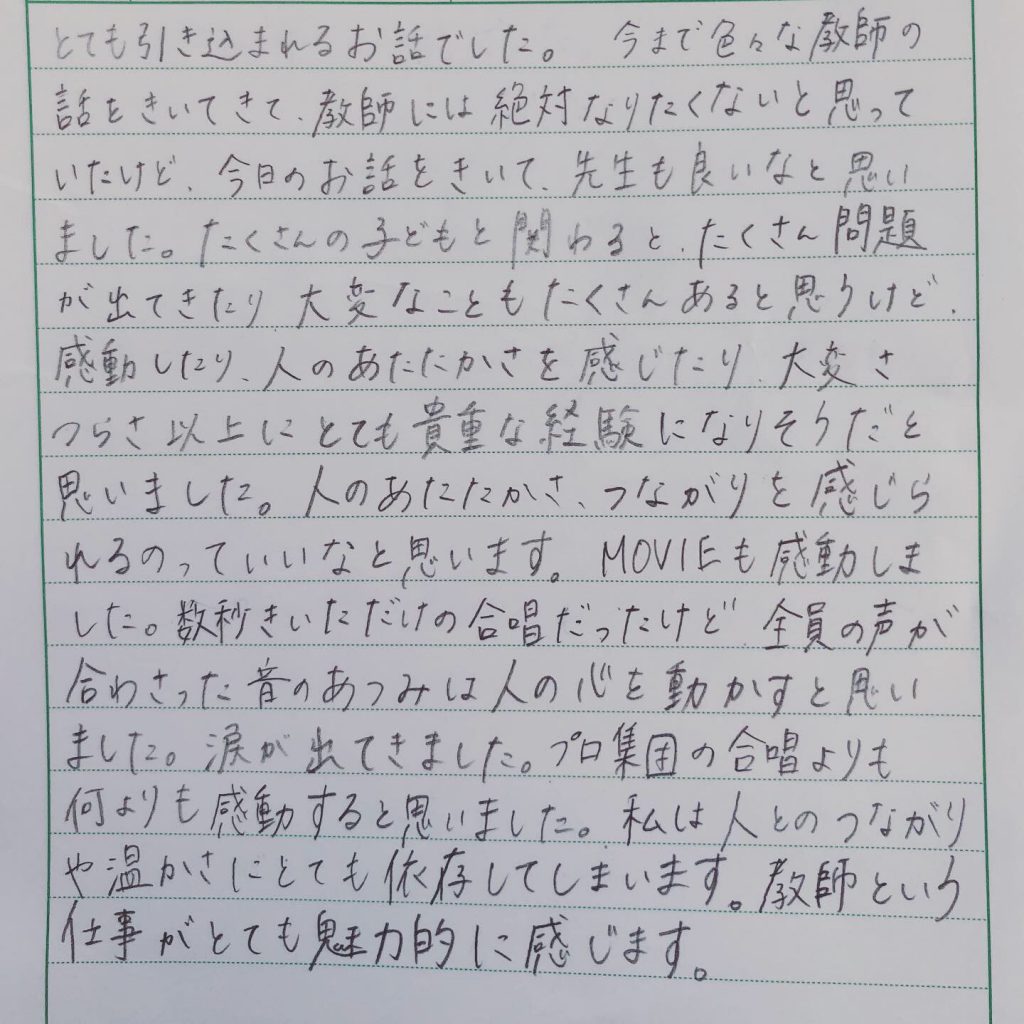 とても引き込まれるお話でした。 今まで色々な教師の
話をきいてきて、教師には絶対なりたくないと思って
いたけど、今日のお話をきいて、先生も良いなと思い
ました。たくさんの子どもと関わると、たくさん問題
が出てきたり大変なこともたくさんあると思うけど、
感動したり、人のあたたかさを感じたり、大変さ
つらさ以上にとても貴重な経験になりそうだと
思いました。人のあたたかさ、つながりを感じら
れるのっていいなと思います。MOVIEも感動しま
した。数秒きいただけの合唱だったけど 全員の声が
合わさった音のあつみは人の心を動かすと思い
ました。涙が出てきました。プロ集団の合唱よりも
何よりも感動すると思いました。私は人とのつながり
や温かさにとても依存してしまいます。教師という
仕事がとても魅力的に感じます。